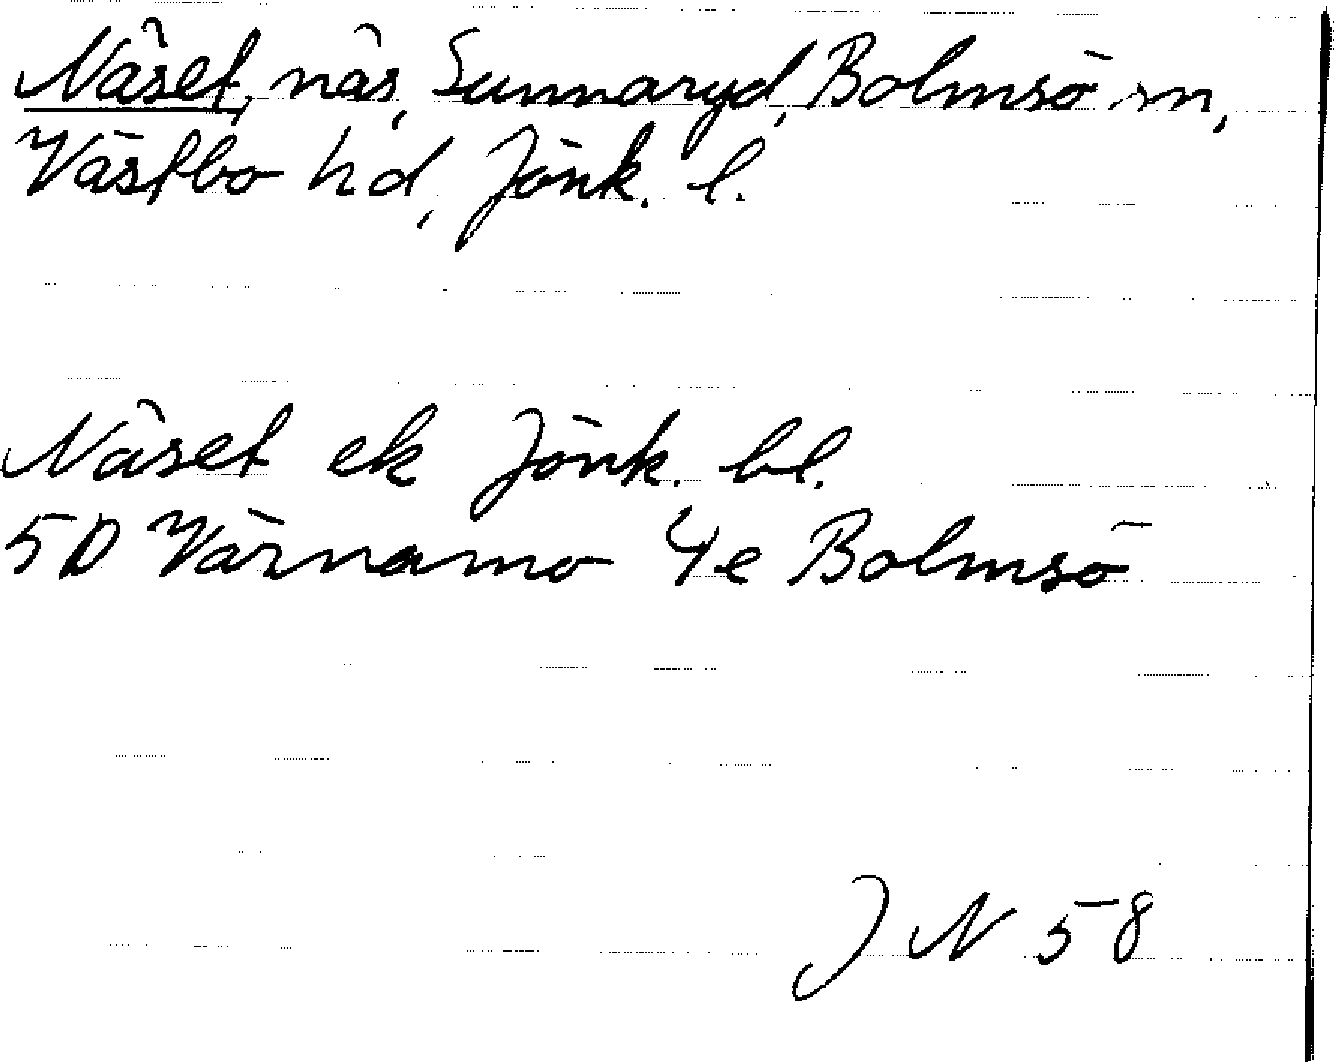 Näset, näs, Sunnaryd, Bolmsö sn,
Västbo hd, Jönk. l.
Näset ek Jönk. bl.
5D Värnamo 4e Bolmsö
J N 58